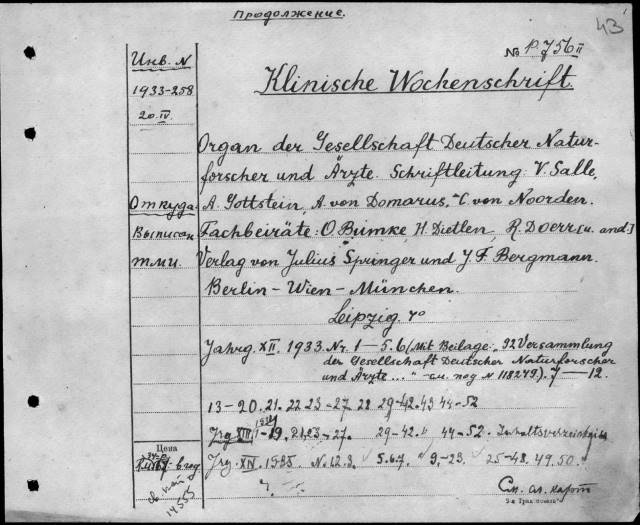 Продолжение.
43
№ P.756 II
Инв. N
1933-258
20.IV
Klinische Wochenschrift.
Organ der Gesellschaft Deutscher Natur-
forscher und Ärzte. Schriftleitung: V. Salle,
Откуда A. Gottstein, A. von Domarus, C. von Noorden.
Выписан Fachbeiräte: O. Bumke, H. Dietlen, R. Doerr [u. and.]
Verlag von Julius Springer und J. F. Bergmann.
Berlin - Wien - München.
Leipzig 4°
Jahrg. XII. 1933. Nr. 1-5.6 (Mit Beilage: "92 Versammlung
der Gesellschaft Deutscher Naturforscher
und Ärzte..." см. под N 118249). 7-12.
13-20. 21. 22 23-27 28 29-42. 43 44-52
Jrg XIII 1-19. 21, 23-27. 29-42. 44-52. Inhaltsverzeichnis
Цена
Jrg. XIV. 1935. N. 1.2.3. 5.6.7. 9.-23. 25-48. 49.50.
14555
См. сл. карт